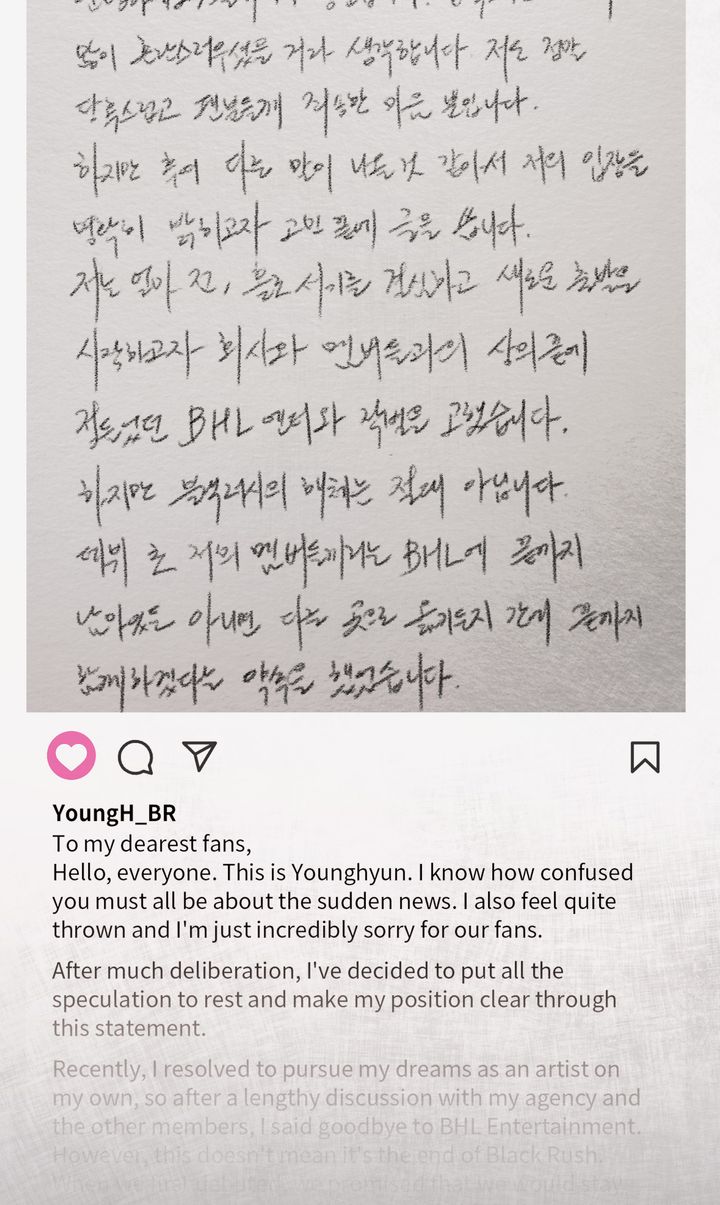 많이 혼란스러우셨을 거라 생각합니다. 저도 정말
당혹스럽고 팬님들께 죄송한 마음 뿐입니다.
하지만 후에 다른 말이 나올 것 같아서 저의 입장을
명확히 밝히고자 고민 끝에 글을 씁니다.
저는 얼마 전, 홀로서기를 결심하고 새로운 출발을
시작하고자 회사와 멤버들과의 상의 끝에
정들었던 BHL 엔터와 작별을 고했습니다.
하지만 블랙러시의 해체는 절대 아닙니다.
데뷔 초 저의 멤버들끼리는 BHL에 끝까지
남아있든 아니면 다른 곳으로 옮기든지 간에 끝까지
함께하겠다는 약속을 했었습니다.
YoungH_BR
To my dearest fans,
Hello, everyone. This is Younghyun. I know how confused
you must all be about the sudden news. I also feel quite
thrown and I'm just incredibly sorry for our fans.
After much deliberation, I've decided to put all the
speculation to rest and make my position clear through
this statement.
Recently, I resolved to pursue my dreams as an artist on
my own, so after a lengthy discussion with my agency and
the other members, I said goodbye to BHL Entertainment.
However, this doesn't mean it's the end of Black Rush.
When we first debuted, we promised that we would stay